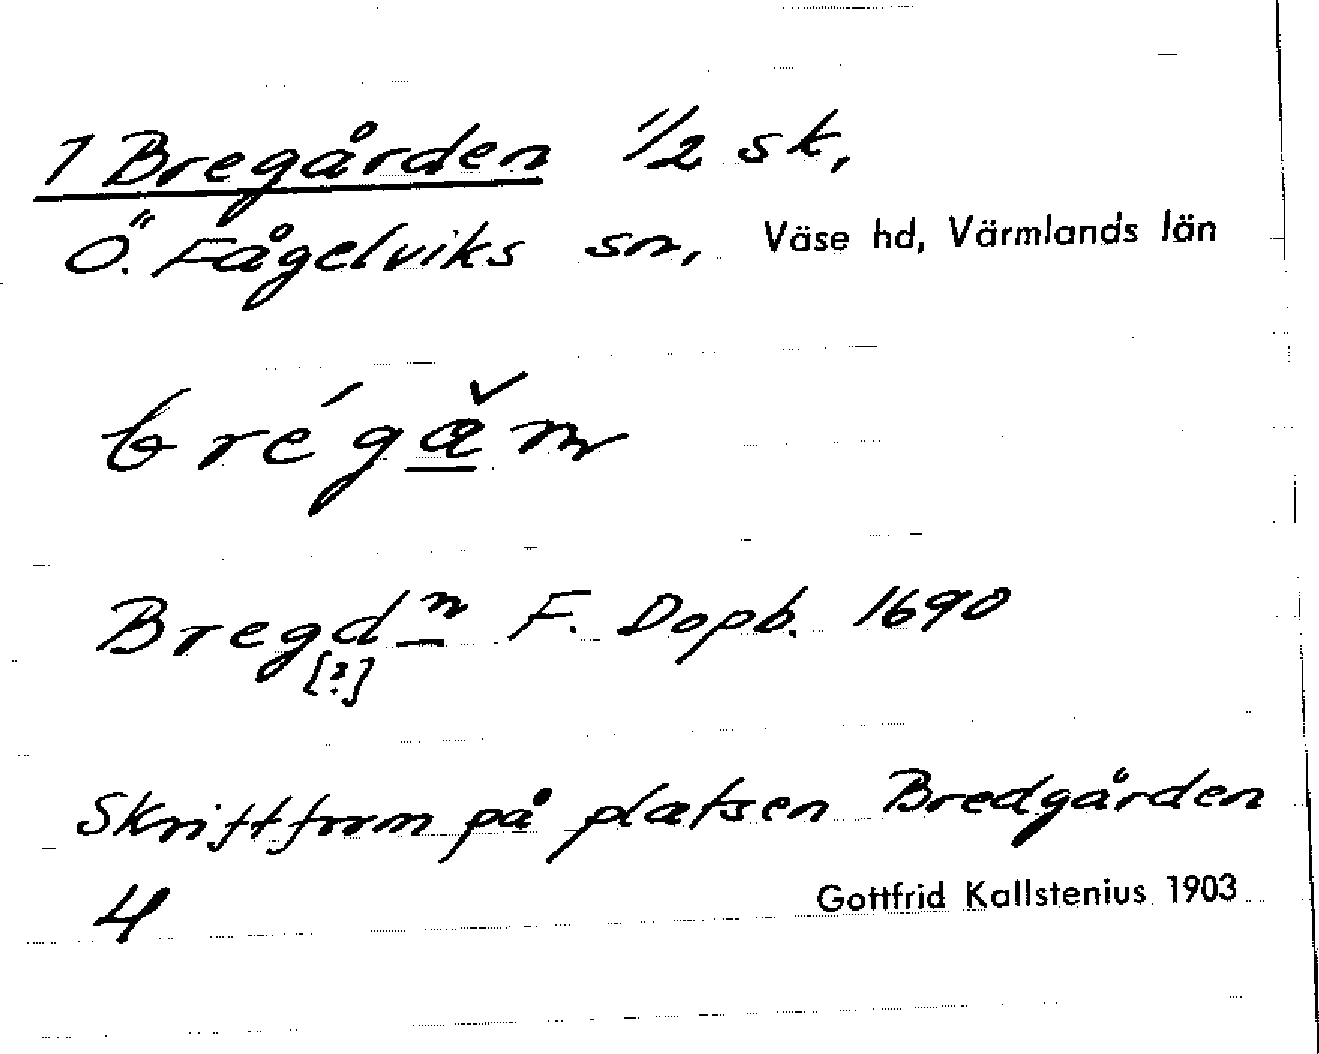 1 Bregården 1/2 sk,
Ö. Fågelviks sn, Väse hd, Värmlands län
brégǎn
Bregdn F. Dopb. 1690
[?]
Skriftform på platsen Bredgården
4 Gottfrid Kallstenius 1903